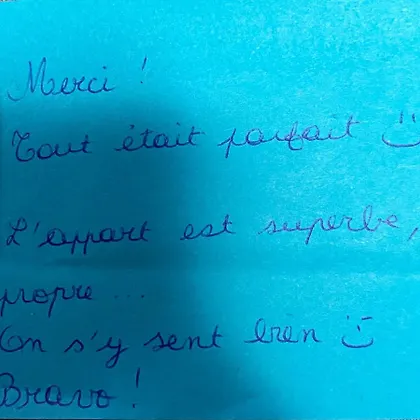 Merci !
Tout était parfait :)
L'appart est superbe,
propre ...
On s'y sent bien :)
Bravo !